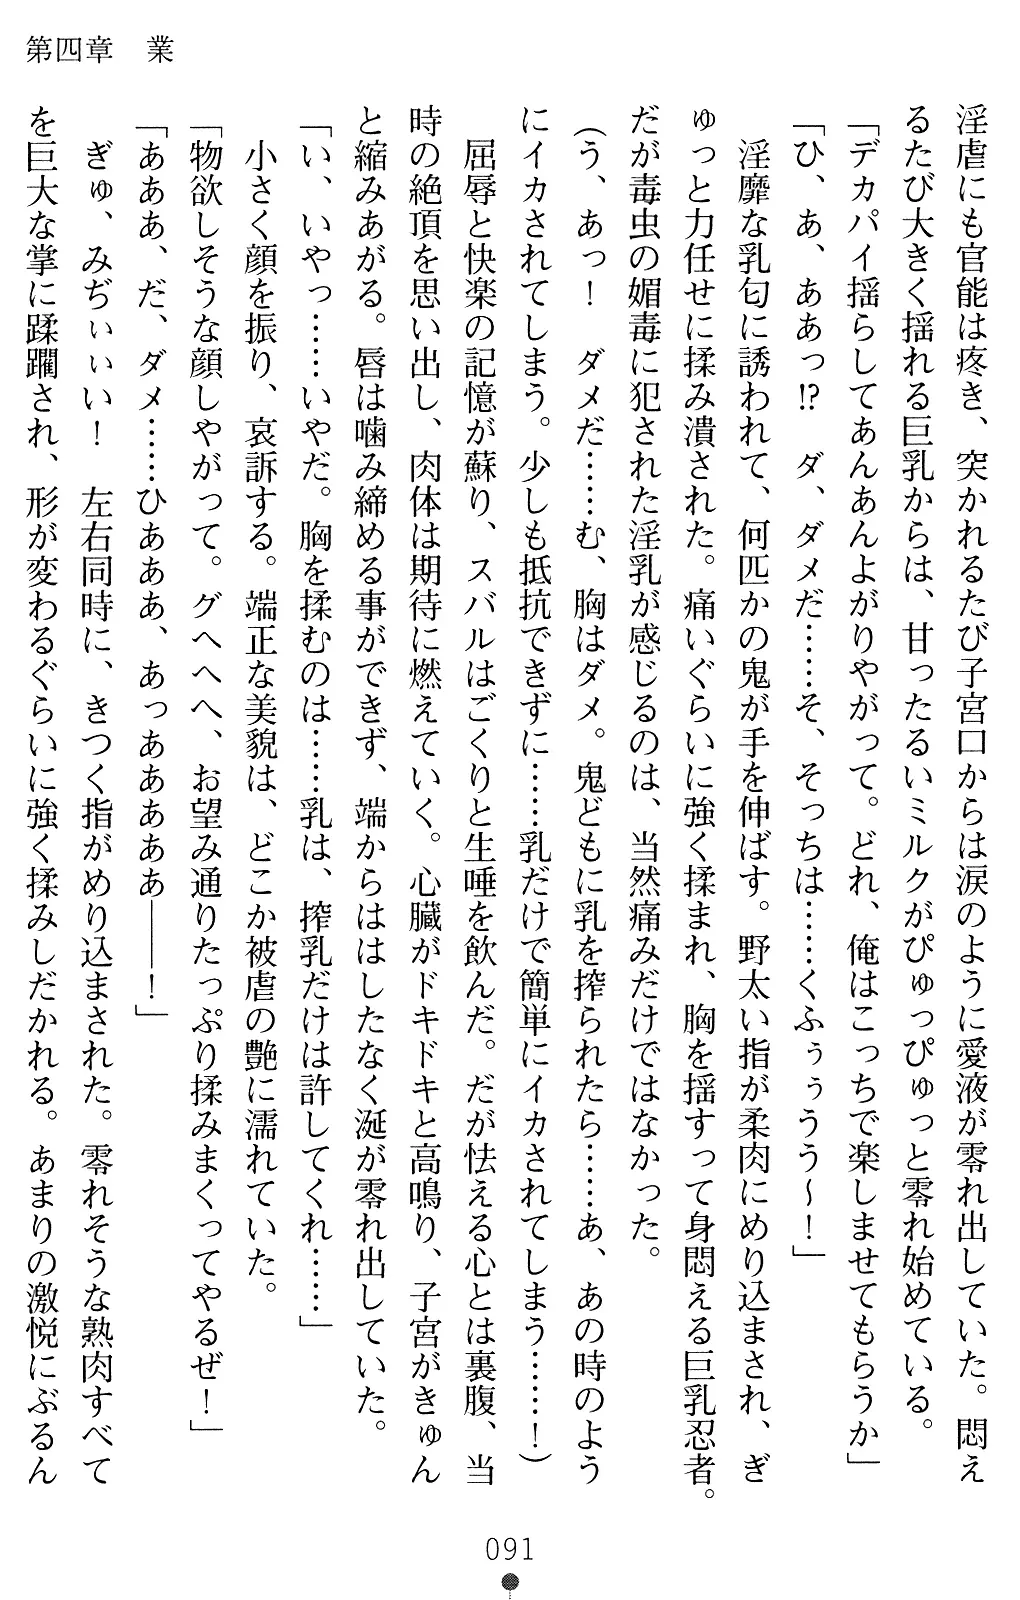 第四章　業
淫虐にも官能は疼き、突かれるたび子宮口からは涙のように愛液が零れ出していた。悶え
るたび大きく揺れる巨乳からは、甘ったるいミルクがぴゅっぴゅっと零れ始めている。
「デカパイ揺らしてあんあんよがりやがって。どれ、俺はこっちで楽しませてもらうか」
「ひ、あ、ああっ!?　ダ、ダメだ……そ、そっちは……くふぅぅうう～！」
　淫靡な乳匂に誘われて、何匹かの鬼が手を伸ばす。野太い指が柔肉にめり込まされ、ぎ
ゅっと力任せに揉み潰された。痛いぐらいに強く揉まれ、胸を揺すって身悶える巨乳忍者。
だが毒虫の媚毒に犯された淫乳が感じるのは、当然痛みだけではなかった。
（う、あっ！　ダメだ……む、胸はダメ。鬼どもに乳を搾られたら……あ、あの時のよう
にイカされてしまう。少しも抵抗できずに……乳だけで簡単にイカされてしまう……！）
　屈辱と快楽の記憶が蘇り、スバルはごくりと生唾を飲んだ。だが怯える心とは裏腹、当
時の絶頂を思い出し、肉体は期待に燃えていく。心臓がドキドキと高鳴り、子宮がきゅん
と縮みあがる。唇は噛み締める事ができず、端からははしたなく涎が零れ出していた。
「い、いやっ……いやだ。胸を揉むのは……乳は、搾乳だけは許してくれ……」
　小さく顔を振り、哀訴する。端正な美貌は、どこか被虐の艶に濡れていた。
「物欲しそうな顔しやがって。グヘヘヘ、お望み通りたっぷり揉みまくってやるぜ！」
「あああ、だ、ダメ……ひあああ、あっあああああ――！」
　ぎゅ、みぢぃぃい！　左右同時に、きつく指がめり込まされた。零れそうな熟肉すべて
を巨大な掌に蹂躙され、形が変わるぐらいに強く揉みしだかれる。あまりの激悦にぶるん
091